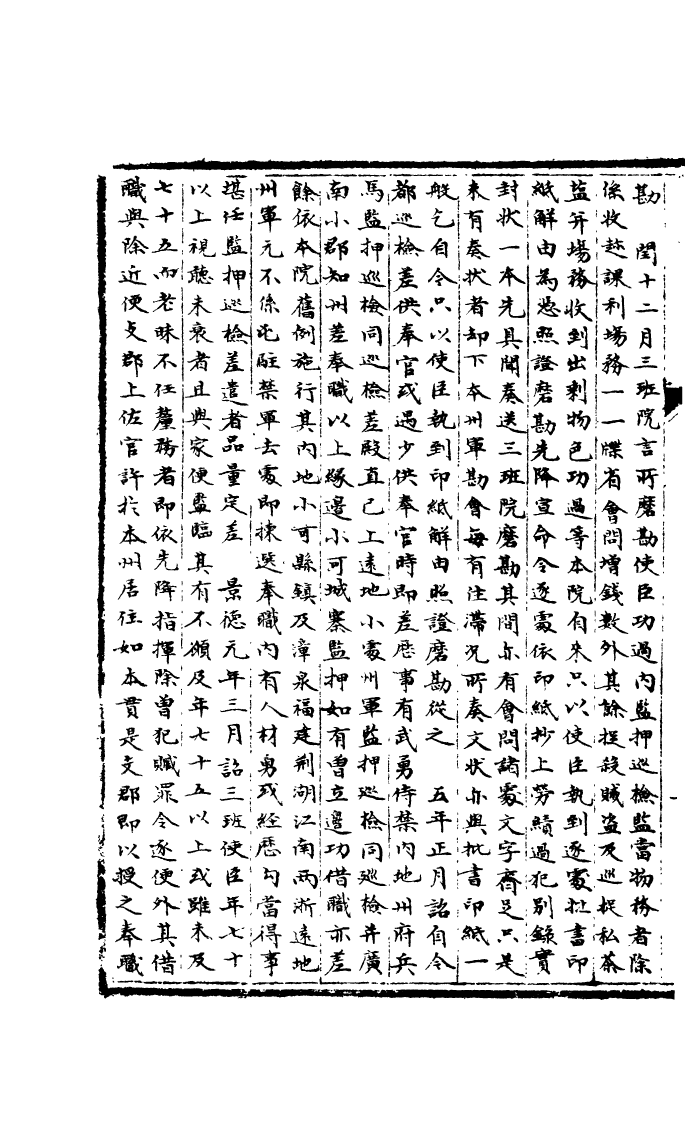 勘　閏十二月三班院言所磨勘使臣功過內監押巡檢監當物務者除
係收趂課利場務一一牒省會問增錢數外其餘捉殺賊盜及巡捉私茶
盐并場務收到出剩物色功過等本院自來只以使臣執到逐處批書印
紙解由為憑照證磨勘先降宣命令逐處依印紙抄上勞績過犯別錄實
封狀一本先具聞奏送三班院磨勘其間亦有會問諸處文字齊足只是
未有奏狀者却下本州軍勘會每有注滯況所奏文狀亦與批書印紙一
般乞自令只以使臣執到印紙解由照證磨勘從之　五年正月詔自今
都巡檢差供奉官或遇少供奉官時即差歷事有武勇侍禁內地州府兵
馬監押巡檢同巡檢差殿直已上遠地小處州軍監押巡檢同巡檢并廣
南小郡知州差奉職以上緣邊小可城寨監押如有曽立邊功借職亦差
餘依本院舊例施行其內地小可縣鎮及漳泉福建荆湖江南兩浙遠地
州軍元不係屯駐禁軍去處即揀選奉職內有人材勇或經歷勾當得事
堪任監押巡檢差遣者品量定差　景德元年三月詔三班使臣年七十
以上視聽未衰者且與家便監臨其有不願及年七十五以上或雖未及
七十五而老昧不任釐務者即依先降指揮除曽犯贓罪令逐便外其借
職與除近便攴郡上佐官許於本州居住如本貫是攴郡即以授之奉職